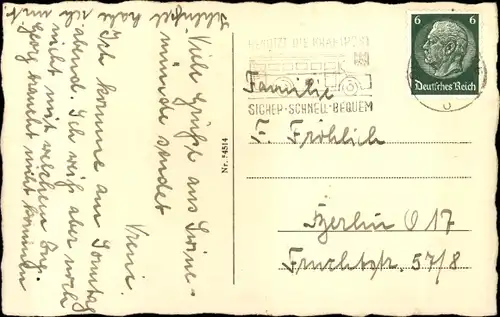 Viele Grüße aus Swine-
münde sendet
Vreni.
Ich komme am Sonntag
abend. Ich weiß aber noch
nicht mit welchem Zug.
Georg braucht nicht kommen
Schlüssel habe ich mit.
Nr. 54514
BENÜTZT DIE KRAFTPOST
SICHER-SCHNELL-BEQUEM
6 6
Deutsches Reich
Familie
F. Fröhlich
Berlin O 17
Fruchtstr. 57/8